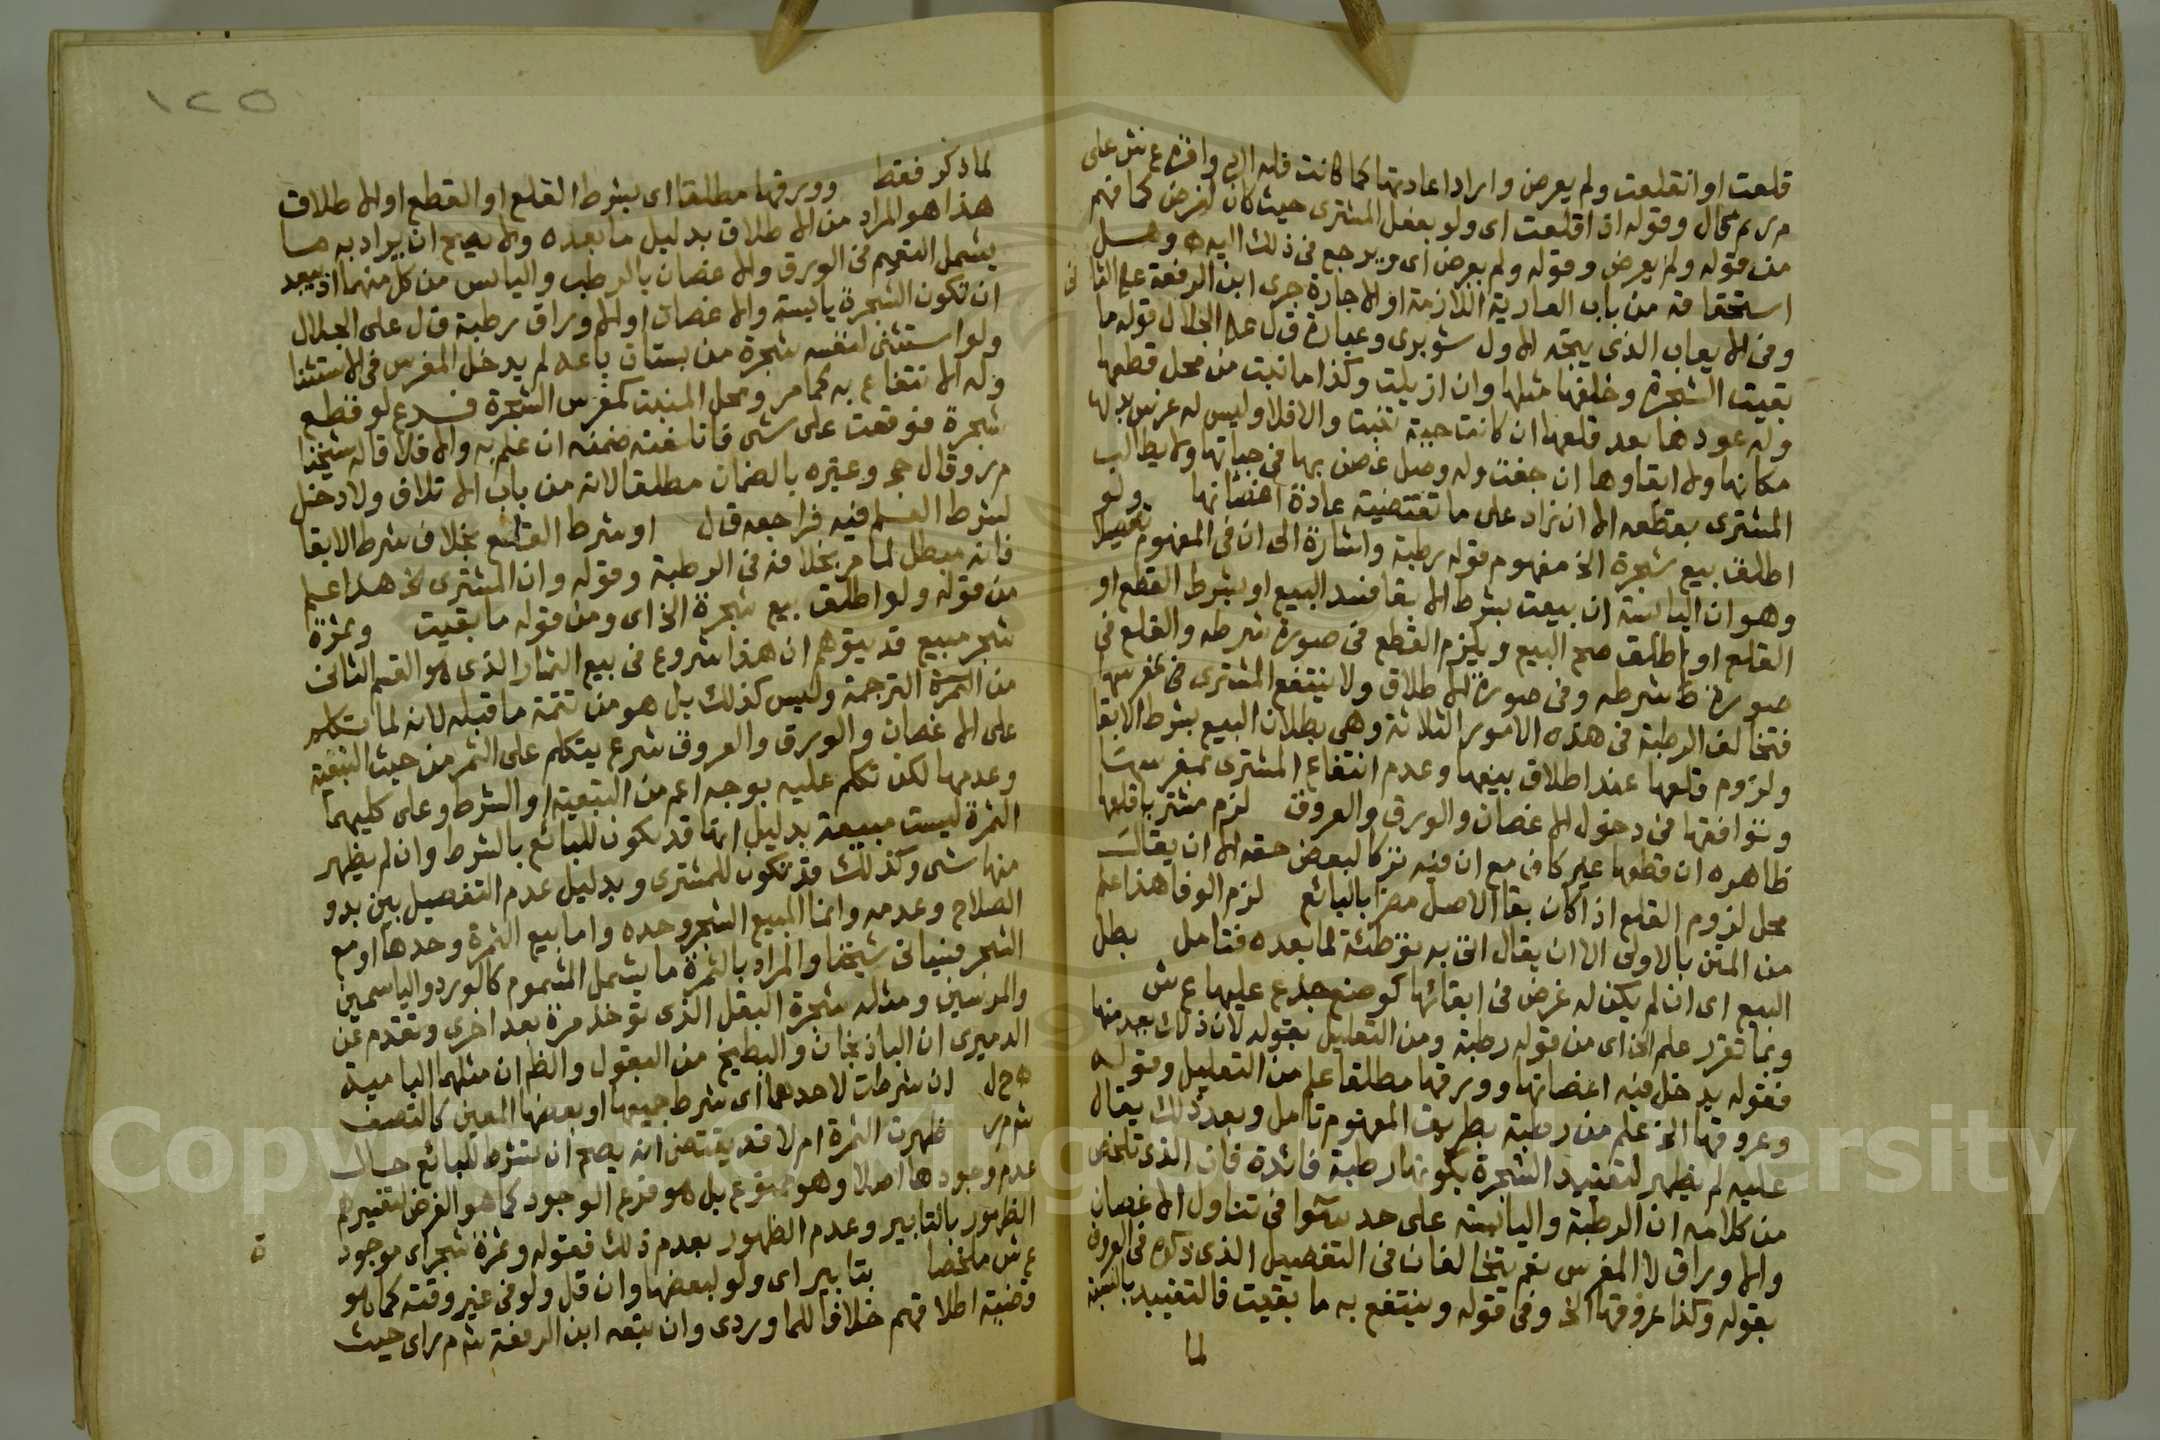 قلعت او انقلعت ولم يعرض واراد اعادتها كما كانت فله الخ وافره ع ش على
م ر م محال وقوله اذا قلعت اى ولو بفعل المشترى حيث كان لغرض كما فهم
من قوله ولم يعرض وقوله ولم يعرض اى ويرجع فى ذلك اليه ه وهل
استحقاقه من باب العارية اللازمة او الاجارة جرى ابن الرفعة على الثانى
وفى الايعاب الذى يتجه الاول شوبرى وعبارة ق ل على الجلال قوله ما
بقيت الشجرة وخلفها مثلها وان ازيلت وكذا ما نبت من محل قطعها
وله عودها بعد قلعها ان كانت حية تنبت والا فلا وليس له غرس بدلها
مكانها ولا ابقاوها ان جفت وله وصل غصن بها فى حياتها ولا يطالب
المشترى بقطعه الا ان زاد على ما تقتضيه عادة اغصانها ولو
اطلق بيع شجرة الخ مفهوم قوله رطبة واشارة الى ان فى المفهوم تفصيلا
وهو ان اليابسة ان بيعت بشرط الابقا فسد البيع او بشرط القطع او
القلع او اطلق صح البيع ويلزم القطع فى صورة شرطه والقلع فى
صورة شرطه وفى صورة الاطلاق ولا ينتفع المشترى فى مغرسها
فتخالف الرطبة فى هذه الامور الثلاثة وهى بطلان البيع بشرط الابقا
ولزوم قلعها عند اطلاق بيعها وعدم انتفاع المشترى بمغرسها
وتوافقها فى دخول الاغصان والورق والعروق لزم مشتريا قلعها
ظاهره ان قطعها غير كاف مع ان فيه تركا لبعض حقه الا ان يقال
محل لزوم القلع اذا كان بقا الاصل مضرا بالبائع لزم الوفا هذا علم
من المتن بالاولى الا ان يقال اتى به توطئة لما بعده فتامل بطل
البيع اى ان لم يكن له غرض فى ابقائها كوضع جذع عليها ع ش
وبما تقرر علم الخ اى من قوله رطبة ومن التعليل بقوله لان ذلك يعد منها
فقوله يدخل فيه اغصانها وورقها مطلقا علم من التعليل وقوله
وعروقها الخ علم من رطبة بطريق المفهوم تامل وبعد ذلك يقال
عليه لم يظهر لتقييد الشجرة بكونها رطبة فائدة فان الذى تلخص
من كلامه ان الرطبة واليابسة على حد سوا فى تناول الاغصان
والاوراق لا المغرس نعم يتخالفان فى التفصيل الذى ذكره فى العروق
بقوله وكذا عروقها الخ وفى قوله وينتفع به ما بقيت فالتقييد بالنسبة
لما
١٢٥
لما ذكر فقط وورقها مطلقا اى بشرط القلع او القطع او الاطلاق
هذا هو المراد من الاطلاق بدليل ما بعده ولا يصح ان يراد به ما
يشمل التعميم فى الورق والاغصان بالرطب واليابس من كل منهما اذ يبعد
ان تكون الشجرة يابسة والاغصان او الاوراق رطبة ق ل على الجلال
ولو استثنى لنفسه شجرة من بستان باعه لم يدخل المغرس فى الاستثنا
وله الانتفاع به كما مر ومحل المنبت كمغرس الشجرة فرع لو قطع
شجرة فوقعت على شى فاتلفته ضمنه ان علم به والا فلا قاله شيخنا
م ر وقال حج وغيره بالضمان مطلقا لانه من باب الاتلاف ولا دخل
لشرط العلم فيه فراجعه ق ل او شرط القطع بخلاف شرط الابقا
فانه مبطل لما مر بخلافه فى الرطبة وقوله وان المشترى الخ هذا علم
من قوله ولو اطلق بيع شجرة الخ اى ومن قوله ما بقيت وثمرة
شجر مبيع قد يتوهم ان هذا شروع فى بيع الثمار الذى هو القسم الثانى
من الترجمة وليس كذلك بل هو من تتمة ما قبله لانه لما تكلم
على الاغصان والورق والعروق شرع يتكلم على الثمر من حيث التبعية
وعدمها لكن تكلم عليه بوجه اعم من التبعية او الشرط وعلى كليهما
الثمرة ليست مبيعة بدليل انها قد تكون للبائع بالشرط وان لم يظهر
منها شى وكذلك قد تكون للمشترى وبدليل عدم التفصيل بين بدو
الصلاح وعدمه وانما المبيع الشجر وحده واما بيع الثمرة وحدها او مع
الشجر فسياتى شيخنا والمراد بالثمرة ما يشمل المشموم كالورد والياسمين
والمرسين ومثله شجرة البقل الذى تؤخذ مرة بعد اخرى وتقدم عن
الدميرى ان الباذنجان والبطيخ من البقول والظاهر ان مثلهما البامية
ه ح ل ان شرطت لاحدهما اى شرط جميعها او بعضها المعين كالنصف
ش م ر ظهرت الثمرة ام لا قد يقتضى انه يصح ان تشرط للبائع حال
عدم وجودها اصلا وهو ممنوع بل هو فرع الوجود كما هو الفرض لتفسيرهم
الظهور بالتابير وعدم الظهور بعدم ذلك فقوله وثمرة شجر اى موجودة
ع ش ملخصا بتابير اى ولو لبعضها وان قل ولو فى غير وقته كما هو
وقضية اطلاقهم خلافا للماوردى وان تبعه ابن الرفعة ش م ر اى حيث